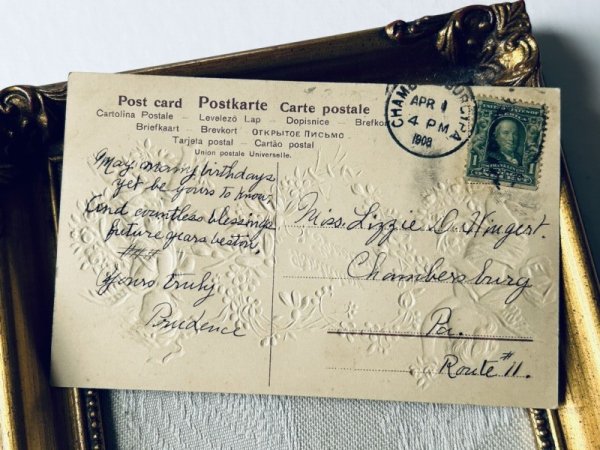 Post card Postkarte Carte postale
Cartolina Postale — Levelező Lap — Dopisnice — Brefkor
Briefkaart - Brevkort - ОТКРЫТОЕ ПИСЬМО -
Tarjeta postal — Cartão postal
Union postale Universelle.
APR 1
4 PM
1908
May many birthdays
yet be yours to know,
And countless blessings
future years bestow.
Yours truly
Prudence
Miss. Lizzie D. Wingert.
Chambersburg
Pa.
Route # 11.